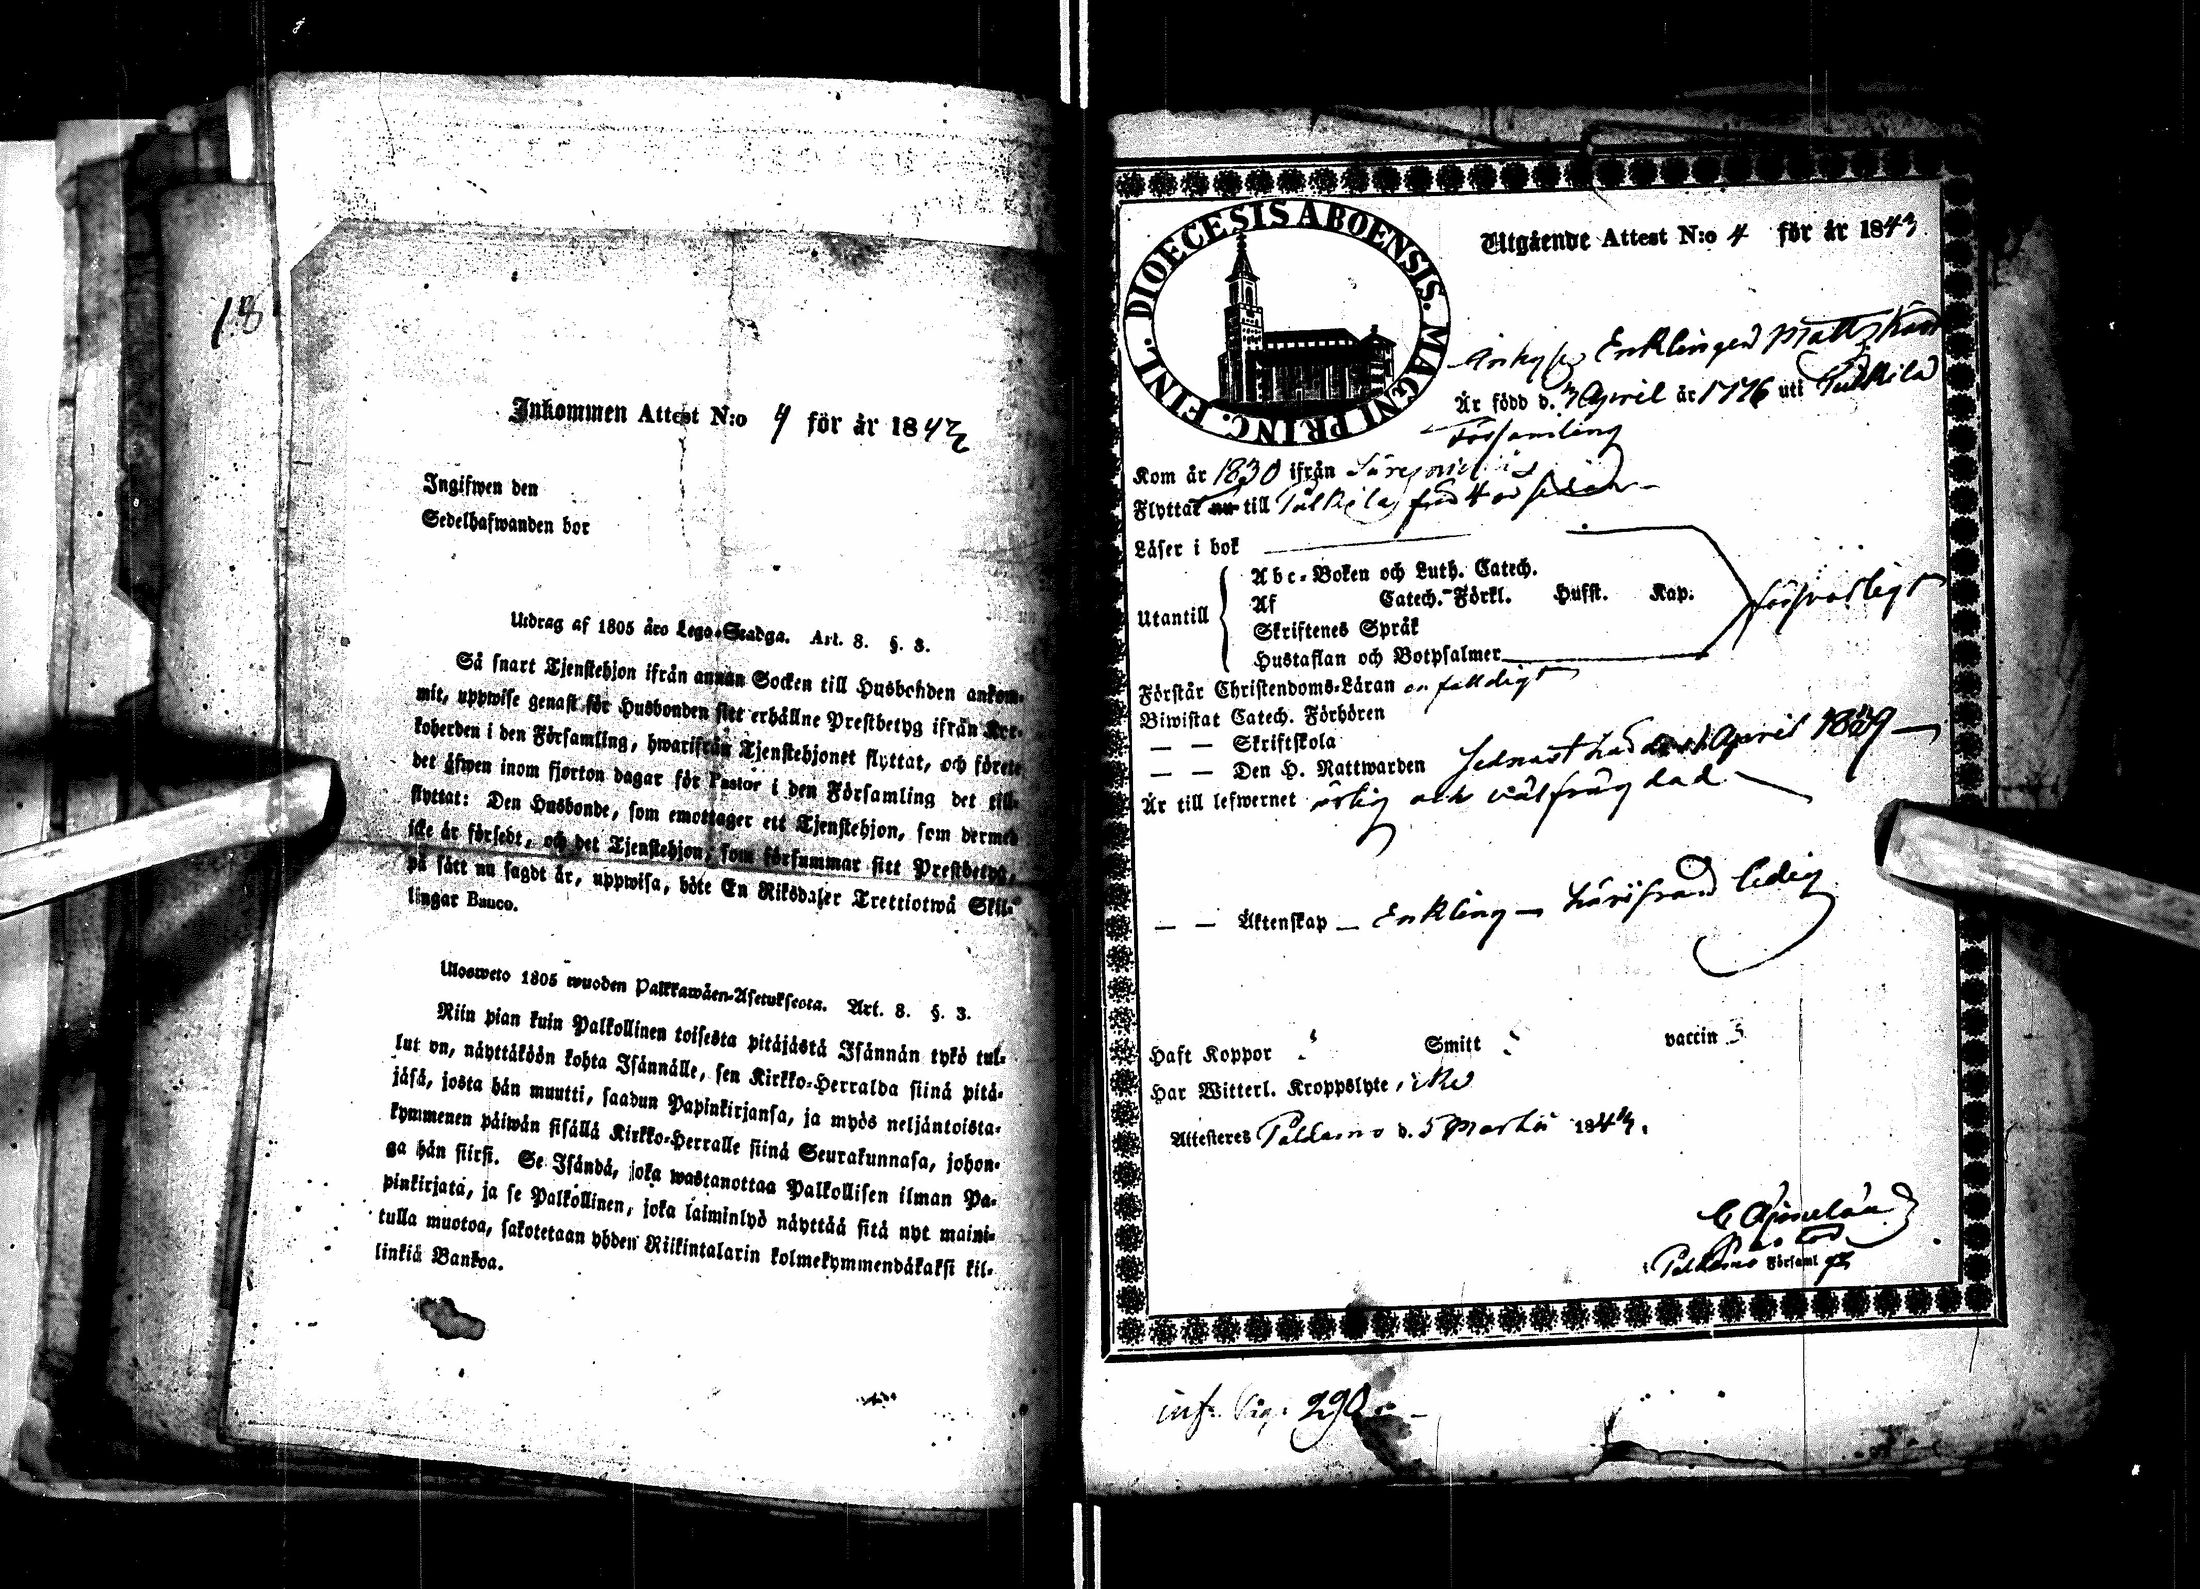 18
Inkommen Attest N:o 4 för år 1843
Ingifwen den
Sedelhafwanden bor
Utdrag af 1805 års Lego-Stadga. Art. 8. §. 3.
Så snart Tjenstehjon ifrån annan Socken till Husbonden ankom-
mit, uppwise genast för Husbonden sitt erhållne Prestbetyg ifrån Kyr-
koherden i den Församling, hwarifrån Tjenstehjonet flyttat, och förete
det äfwen inom fjorton dagar för Pastor i den Församling det till-
flyttat: Den Husbonde, som emottager ett Tjenstehjon, som dermed
icke är försedt, och det Tjenstehjon, som försummar sitt Prestbetyg,
på sätt nu sagdt är, uppwisa, böte En Riksdaler Trettiotwå Skil-
lingar Banco.
Ulosweto 1805 wuoden Palkkawäen-Asetuksesta. Art. 8. §. 3.
Niin pian kuin Palkollinen toisesta pitäjästä Isännän tykö tul-
lut on, näyttäköön kohta Isännälle, sen Kirkko-Herralda siinä pitä-
jäsä, josta hän muutti, saadun Papinkirjansa, ja myös neljäntoista-
kymmenen päiwän sisällä Kirkko-Herralle siinä Seurakunnasa, johon-
ga hän siirsi. Se Isändä, joka wastanottaa Palkollisen ilman Pa-
pinkirjata, ja se Palkollinen, joka laiminlyö näyttää sitä nyt maini-
tulla muotoa, sakotetaan yhden Riikintalarin kolmekymmendäkaksi kil-
linkiä Bankoa.
DIOECESIS ABOENSIS. MAGNI PRINC. FINL.
Utgående Attest N:o 4 för år 1843
Enklingen Matts
Är född d. 7 April år 1776 uti Pulkila
Församling
Kom år 1830 ifrån
Flyttat till Pulkila
Läser i bok
Utantill
Abc-Boken och Luth. Catech.
Af Catech.-Förkl. Hufst. Kap.
Skriftenes Språk
Hustaflan och Botpsalmer
försvarligt
Förstår Christendoms-Läran enfalldigt
Biwistat Catech. Förhören
— — Skriftskola
— — Den H. Nattwarden sednast April 1839
Är till lefwernet ärlig och välfrägdad
— — Äktenskap — Enkling — härifrån ledig
Haft Koppor Smitt vaccin
Har Witterl. Kroppslyte icke
Attesteres Paldamo d. 5 Martii 1843.
C Ajmelæus
Paldamo Församl
inf. Pag. 290